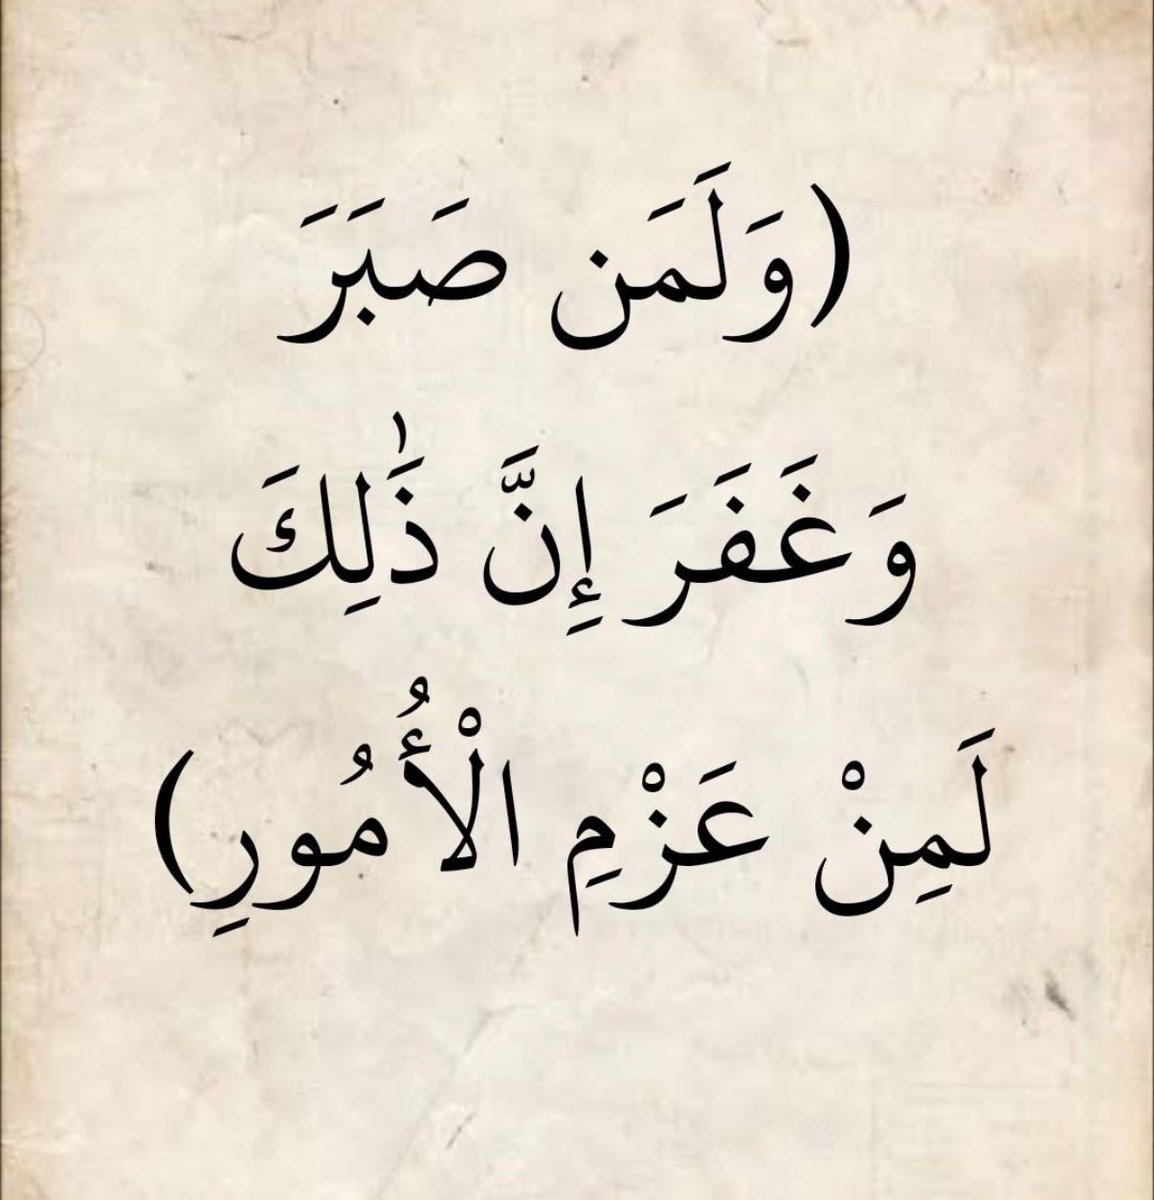 (وَلَمَن صَبَرَ
وَغَفَرَ إِنَّ ذَٰلِكَ
لَمِنْ عَزْمِ الْأُمُورِ)